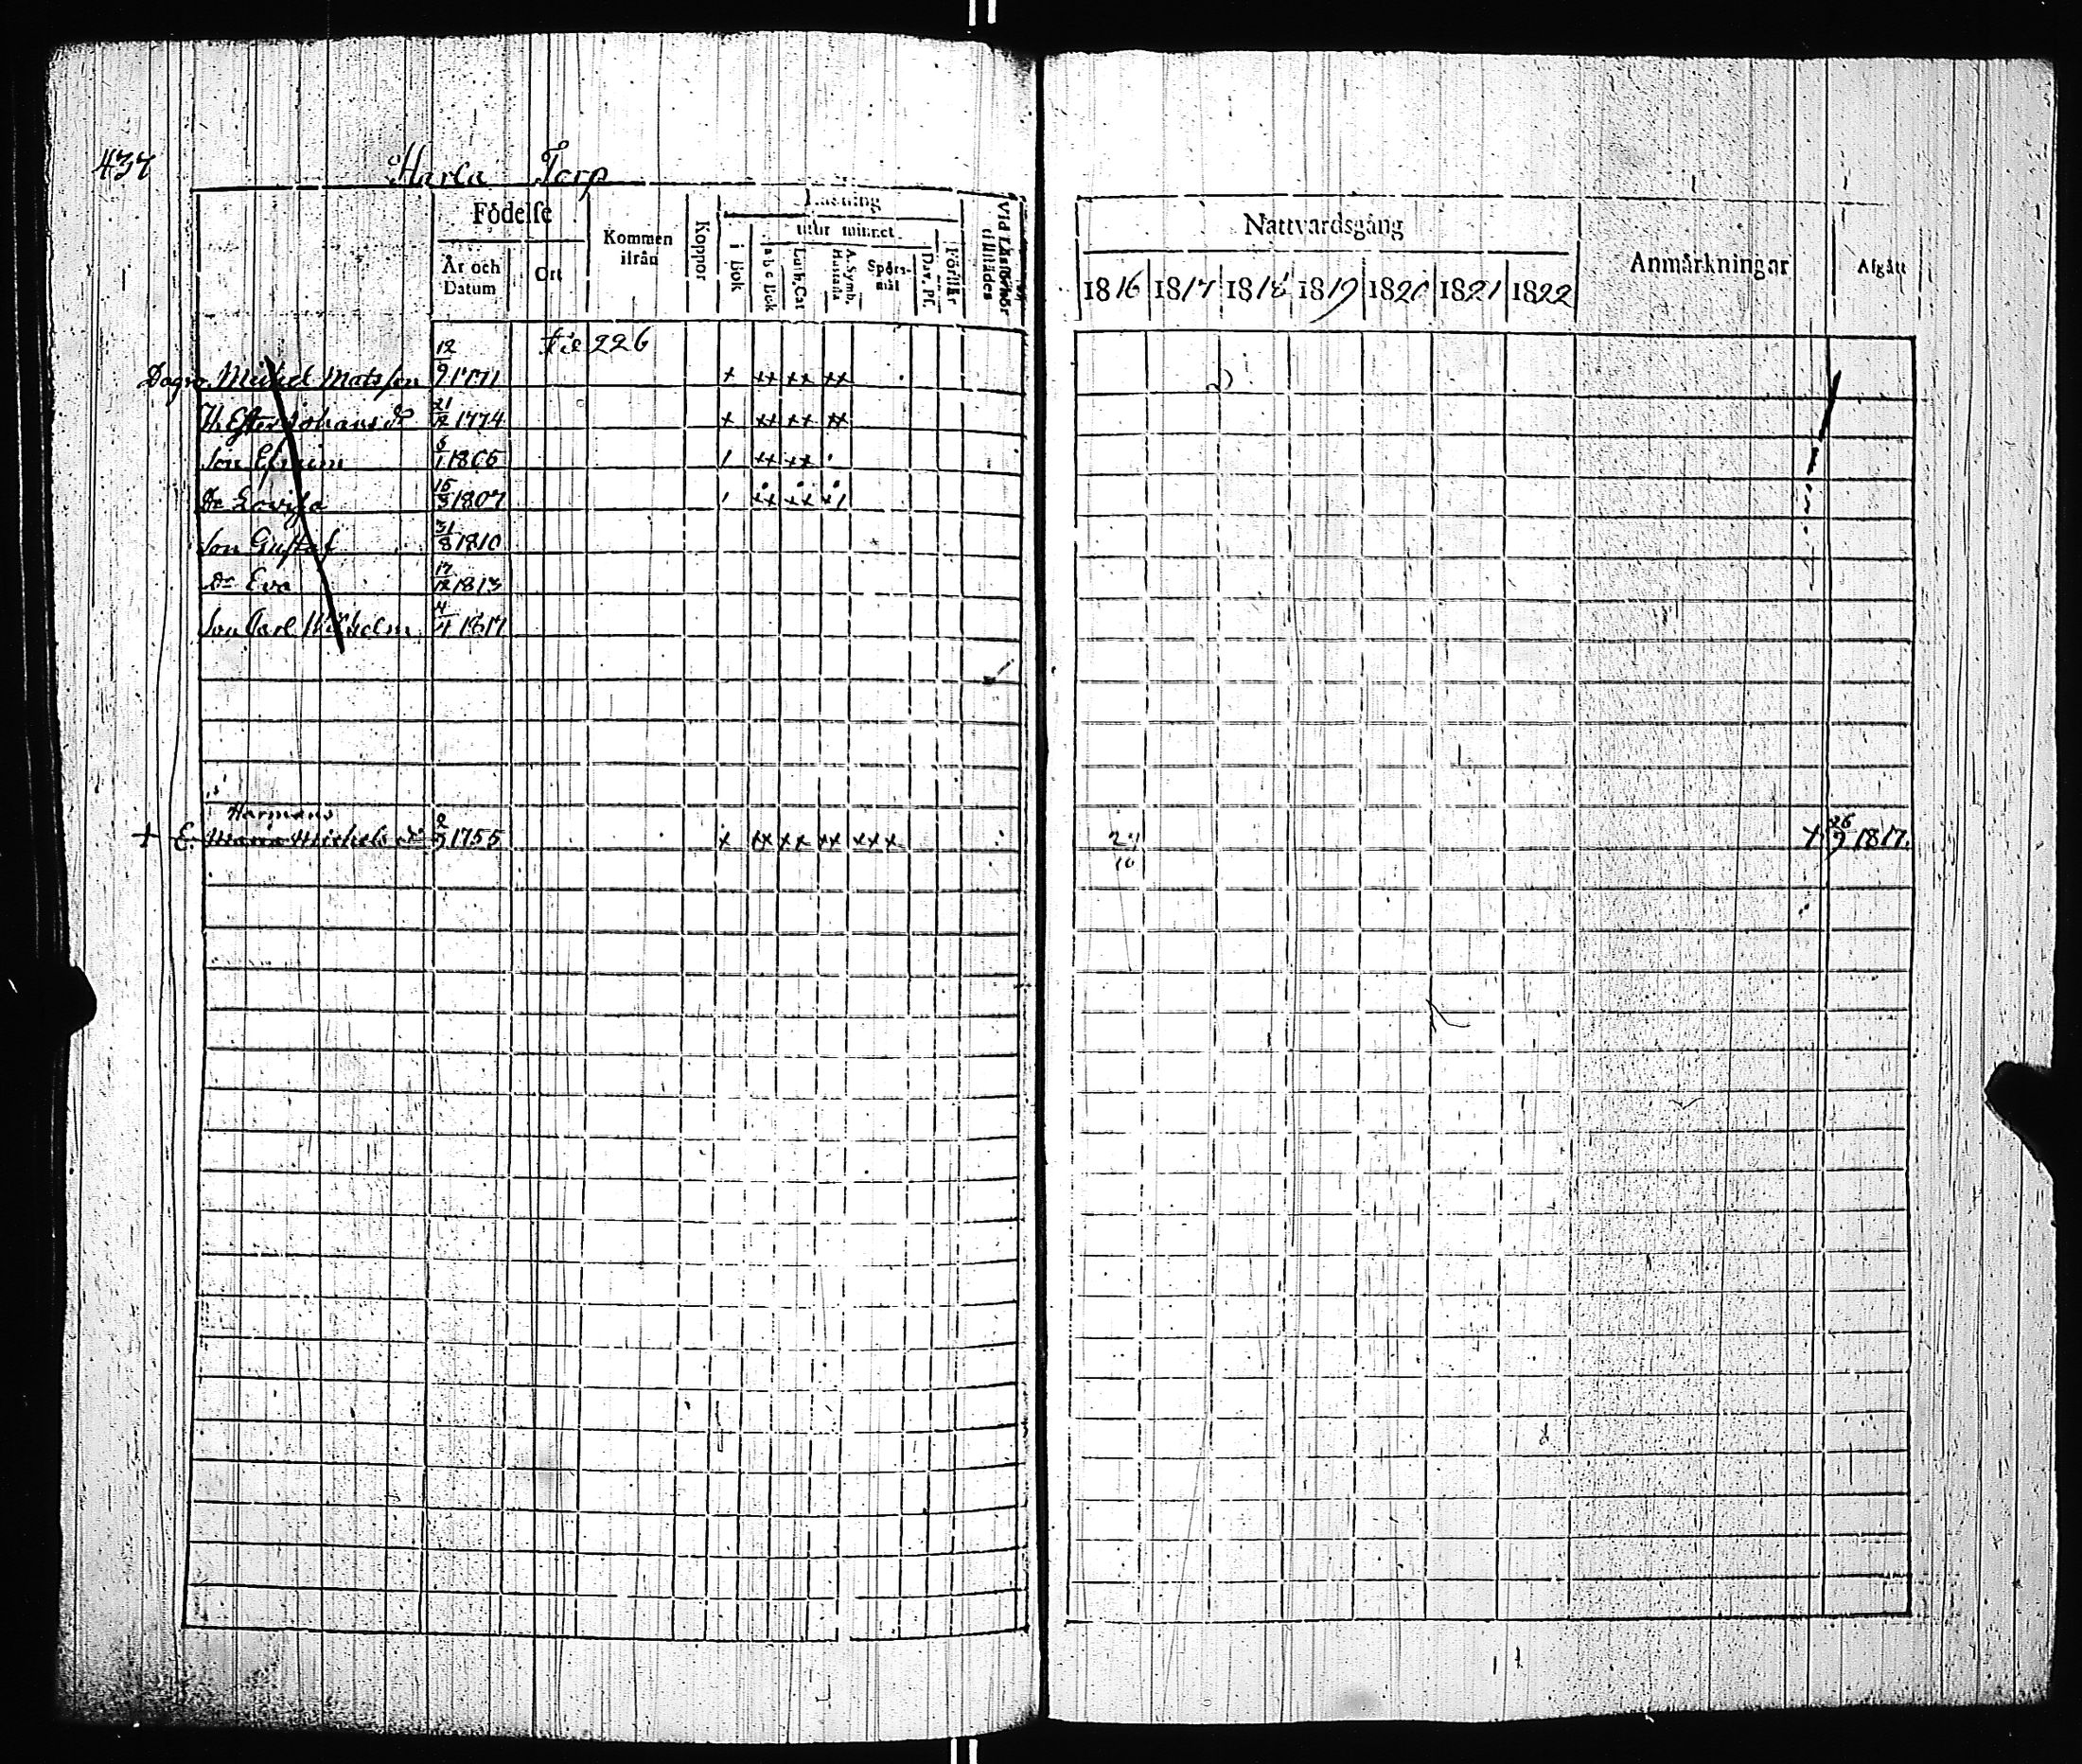 437
Harla Torp
Födelse
Läsning
Kommen ifrån
Koppor
utur minnet
Vid Läsförhör tillstädes
År och Datum
Ort
i Bok
a b c Bok
Luth. Cat
A. Symb. Hustafla
Spörsmål
Dav. Ps.
Förstår
Nattvardsgång
Anmärkningar
Afgått
1816 1817 1818 1819 1820 1821 1822
226
Michel Matsson 12/9 1771 x xx xx xx
H. Ester Johans dr 21/12 1774 x xx xx xx
Son Efraim 1806
Dr Lovisa 15/3 1807
Son Gustaf 31/8 1810
Dr Eva 17/12 1813
Son Carl Wilhelm 4/4 1817
Harmans
+ E. Maria Michels dr 1755 x xx xx xx xxx 24/10 + 26/7 1817.